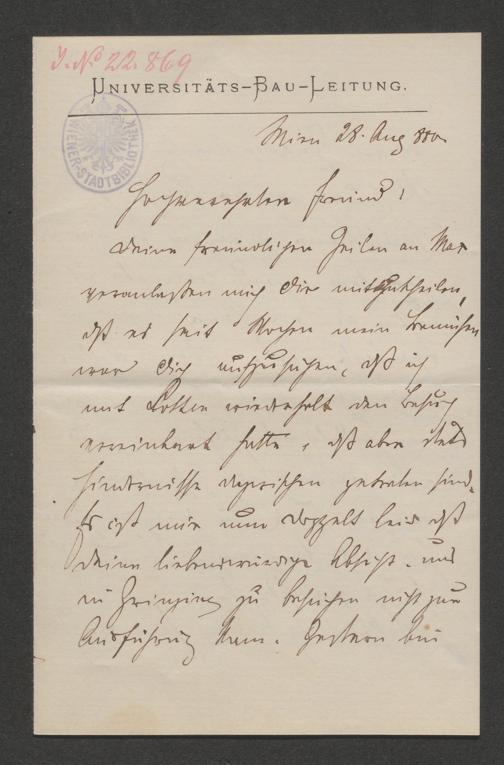 J. No 22.869
UNIVERSITÄTS-BAU-LEITUNG.
WIENER-STADTBIBLIOTHEK
Wien 28. Aug 880
Hochverehrter Freund!
Deine freundlichen Zeilen an Max
veranlaßen mich Dir mitzutheilen,
daß es seit Wochen mein Bemühen
war Dich aufzusuchen, daß ich
mit Lotten wiederholt den Besuch
vereinbart hatte, daß aber stets
Hindernisse dazwischen getreten sind.
Es ist mir nun doppelt leid daß
Deine liebenswürdige Absicht uns
in Grinzing zu besuchen nicht zur
Ausführung kam. Gestern bin